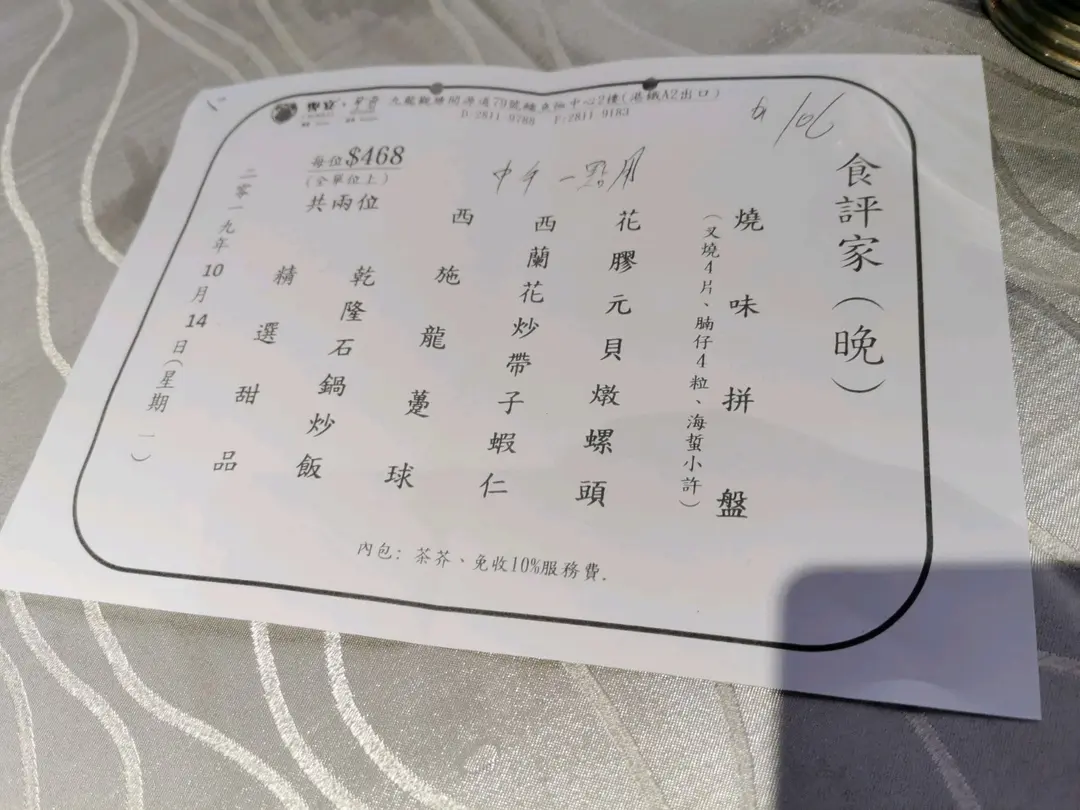 九龍觀塘開源道79號鱷魚恤中心2樓(港鐵A2出口)
D:2811 9788 F:2811 9183
食評家(晚)
燒味拼盤
(叉燒4片、腩仔4粒、海蜇小許)
花膠元貝燉螺頭
西蘭花炒帶子蝦仁
西施龍躉球
乾隆石鍋炒飯
精選甜品
每位$468
(全單位上)
共兩位
二零一九年10月14日(星期一)
內包: 茶芥、免收10%服務費.